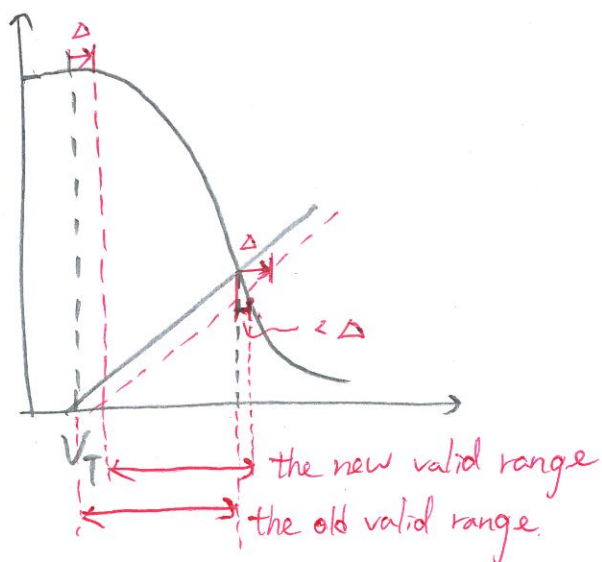 Δ
Δ
< Δ
V_T
the new valid range
the old valid range.